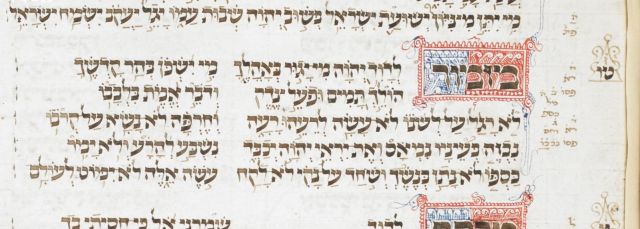 מי יתן מציון ישועת ישראל בשוב יהוה שבות עמו יגל יעקב ישמח ישראל
טו
מזמור לדוד יהוה מי יגור באהלך מי ישכן בהר קדשך
הולך תמים ופעל צדק ודבר אמת בלבבו
לא רגל על לשנו לא עשה לרעהו רעה וחרפה לא נשא על קרבו
נבזה בעיניו נמאס ואת יראי יהוה יכבד נשבע להרע ולא ימיר
כספו לא נתן בנשך ושחד על נקי לא לקח עשה אלה לא ימוט לעולם
מכתם לדוד שמרני אל כי חסיתי בך